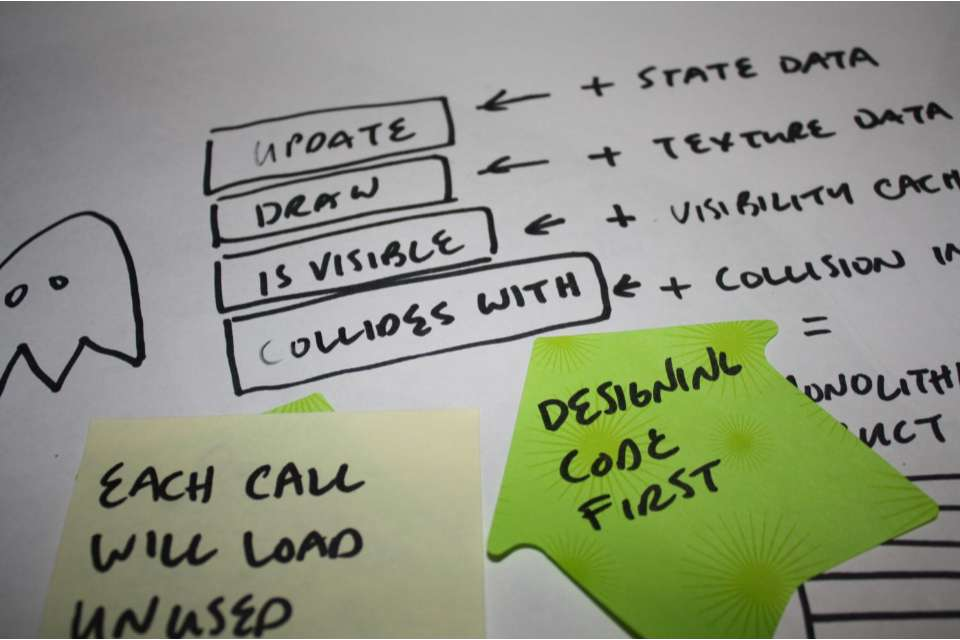 UPDATE ← + STATE DATA
DRAW ← + TEXTURE DATA
IS VISIBLE ← + VISIBILITY CACH
COLLIDES WITH ← + COLLISION IN
=
MONOLITHI
UCT
DESIGNING
CODE
FIRST
EACH CALL
WILL LOAD
UNUSED